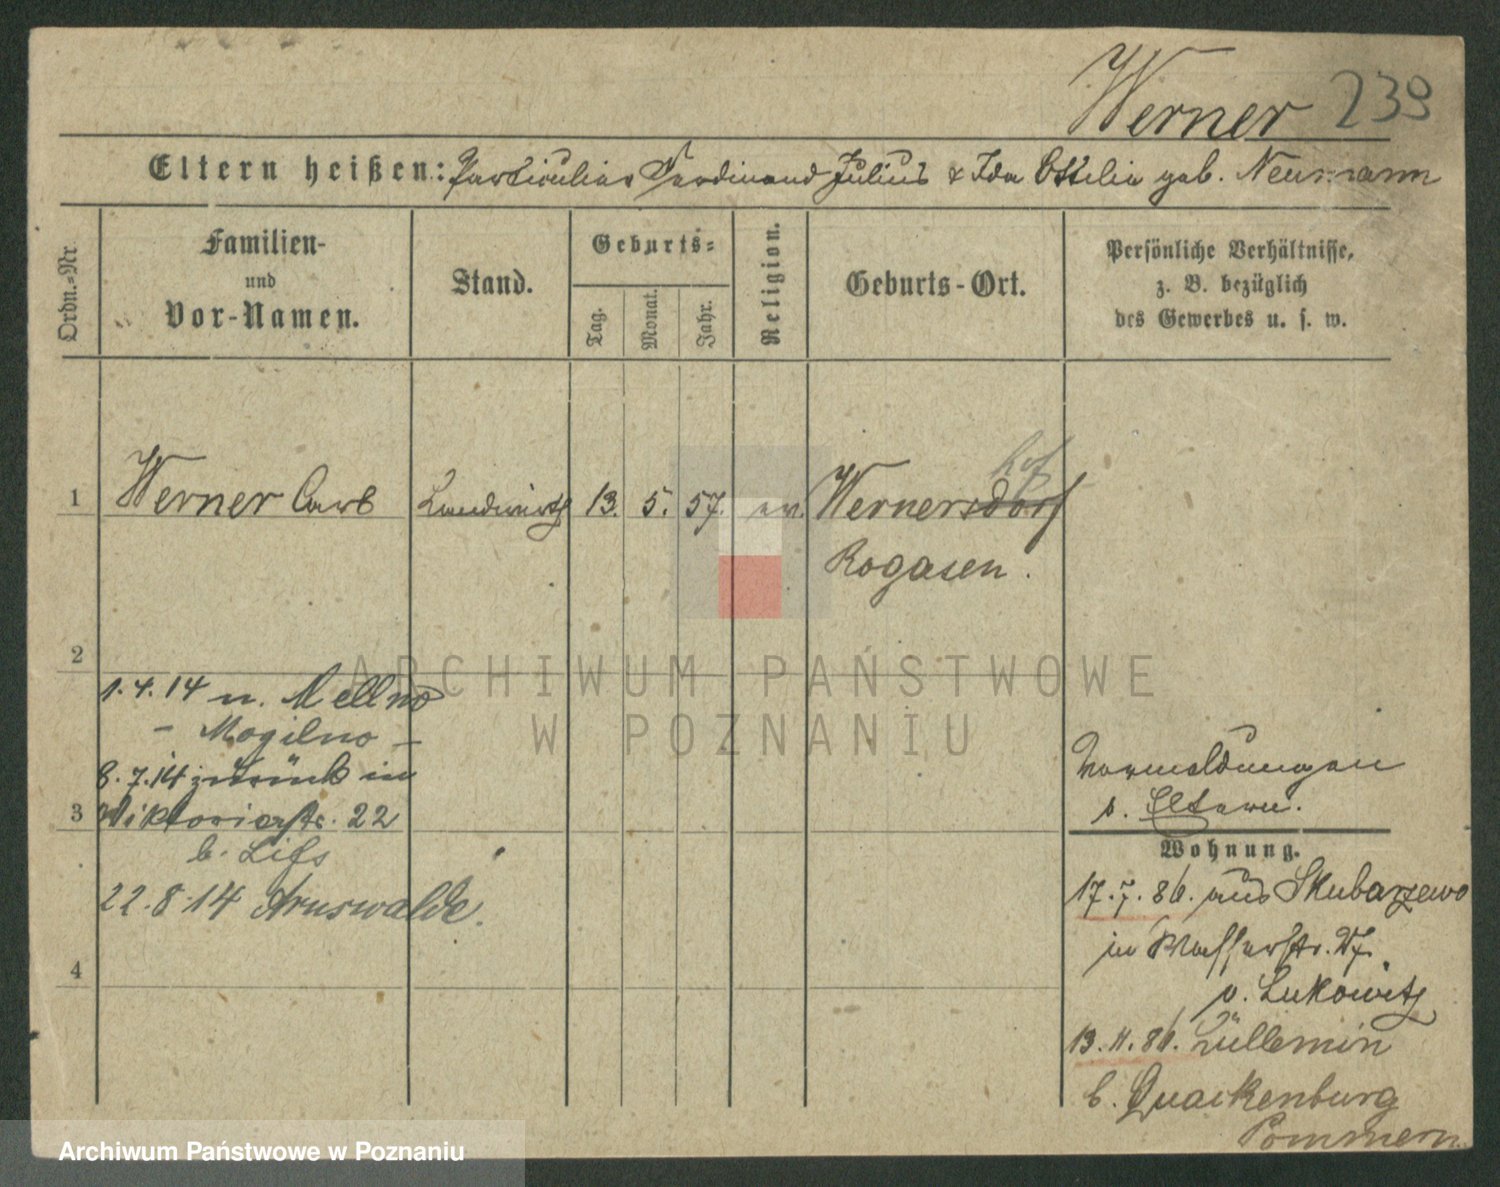 Werner 239
Eltern heißen: Particulier Ferdinand Julius & Ida Ottilie geb. Neumann
Ordn.-Nr.
Familien-
und
Vor-Namen.
Stand.
Geburts-
Tag.
Monat.
Jahr.
Religion.
Geburts-Ort.
Persönliche Verhältnisse,
z. B. bezüglich
des Gewerbes u. s. w.
hof
1 Werner Carl Landwirth 13. 5. 57. ev. Wernersdorf
Rogasen.
2
1.4.14 n. Mellno
- Mogilno -
8.7.14 zurück in
3 Viktoriastr. 22
b.
22.8.14 Arnswalde.
4
Vormeldungen
s. Eltern.
Wohnung.
17.7.86. aus Skubarzewo
in Wasserstr.
v. Lukowitz
13.11.86. Züllemin
b. Quackenburg
Pommern.
ARCHIWUM PAŃSTWOWE
W POZNANIU
Archiwum Państwowe w Poznaniu